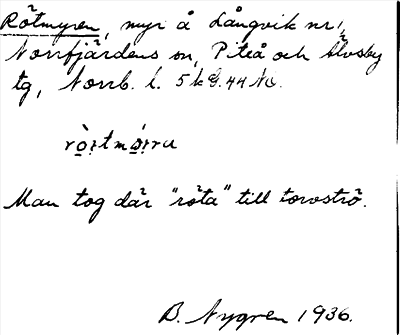 Rötmyren, myr å Långvik nr 1,
Norrfjärdens sn, Piteå och Älvsby
tg, Norrb. l. 5 k G. 44 NO.
Man tog där "röta" till torvströ.
B. Nygren 1936.